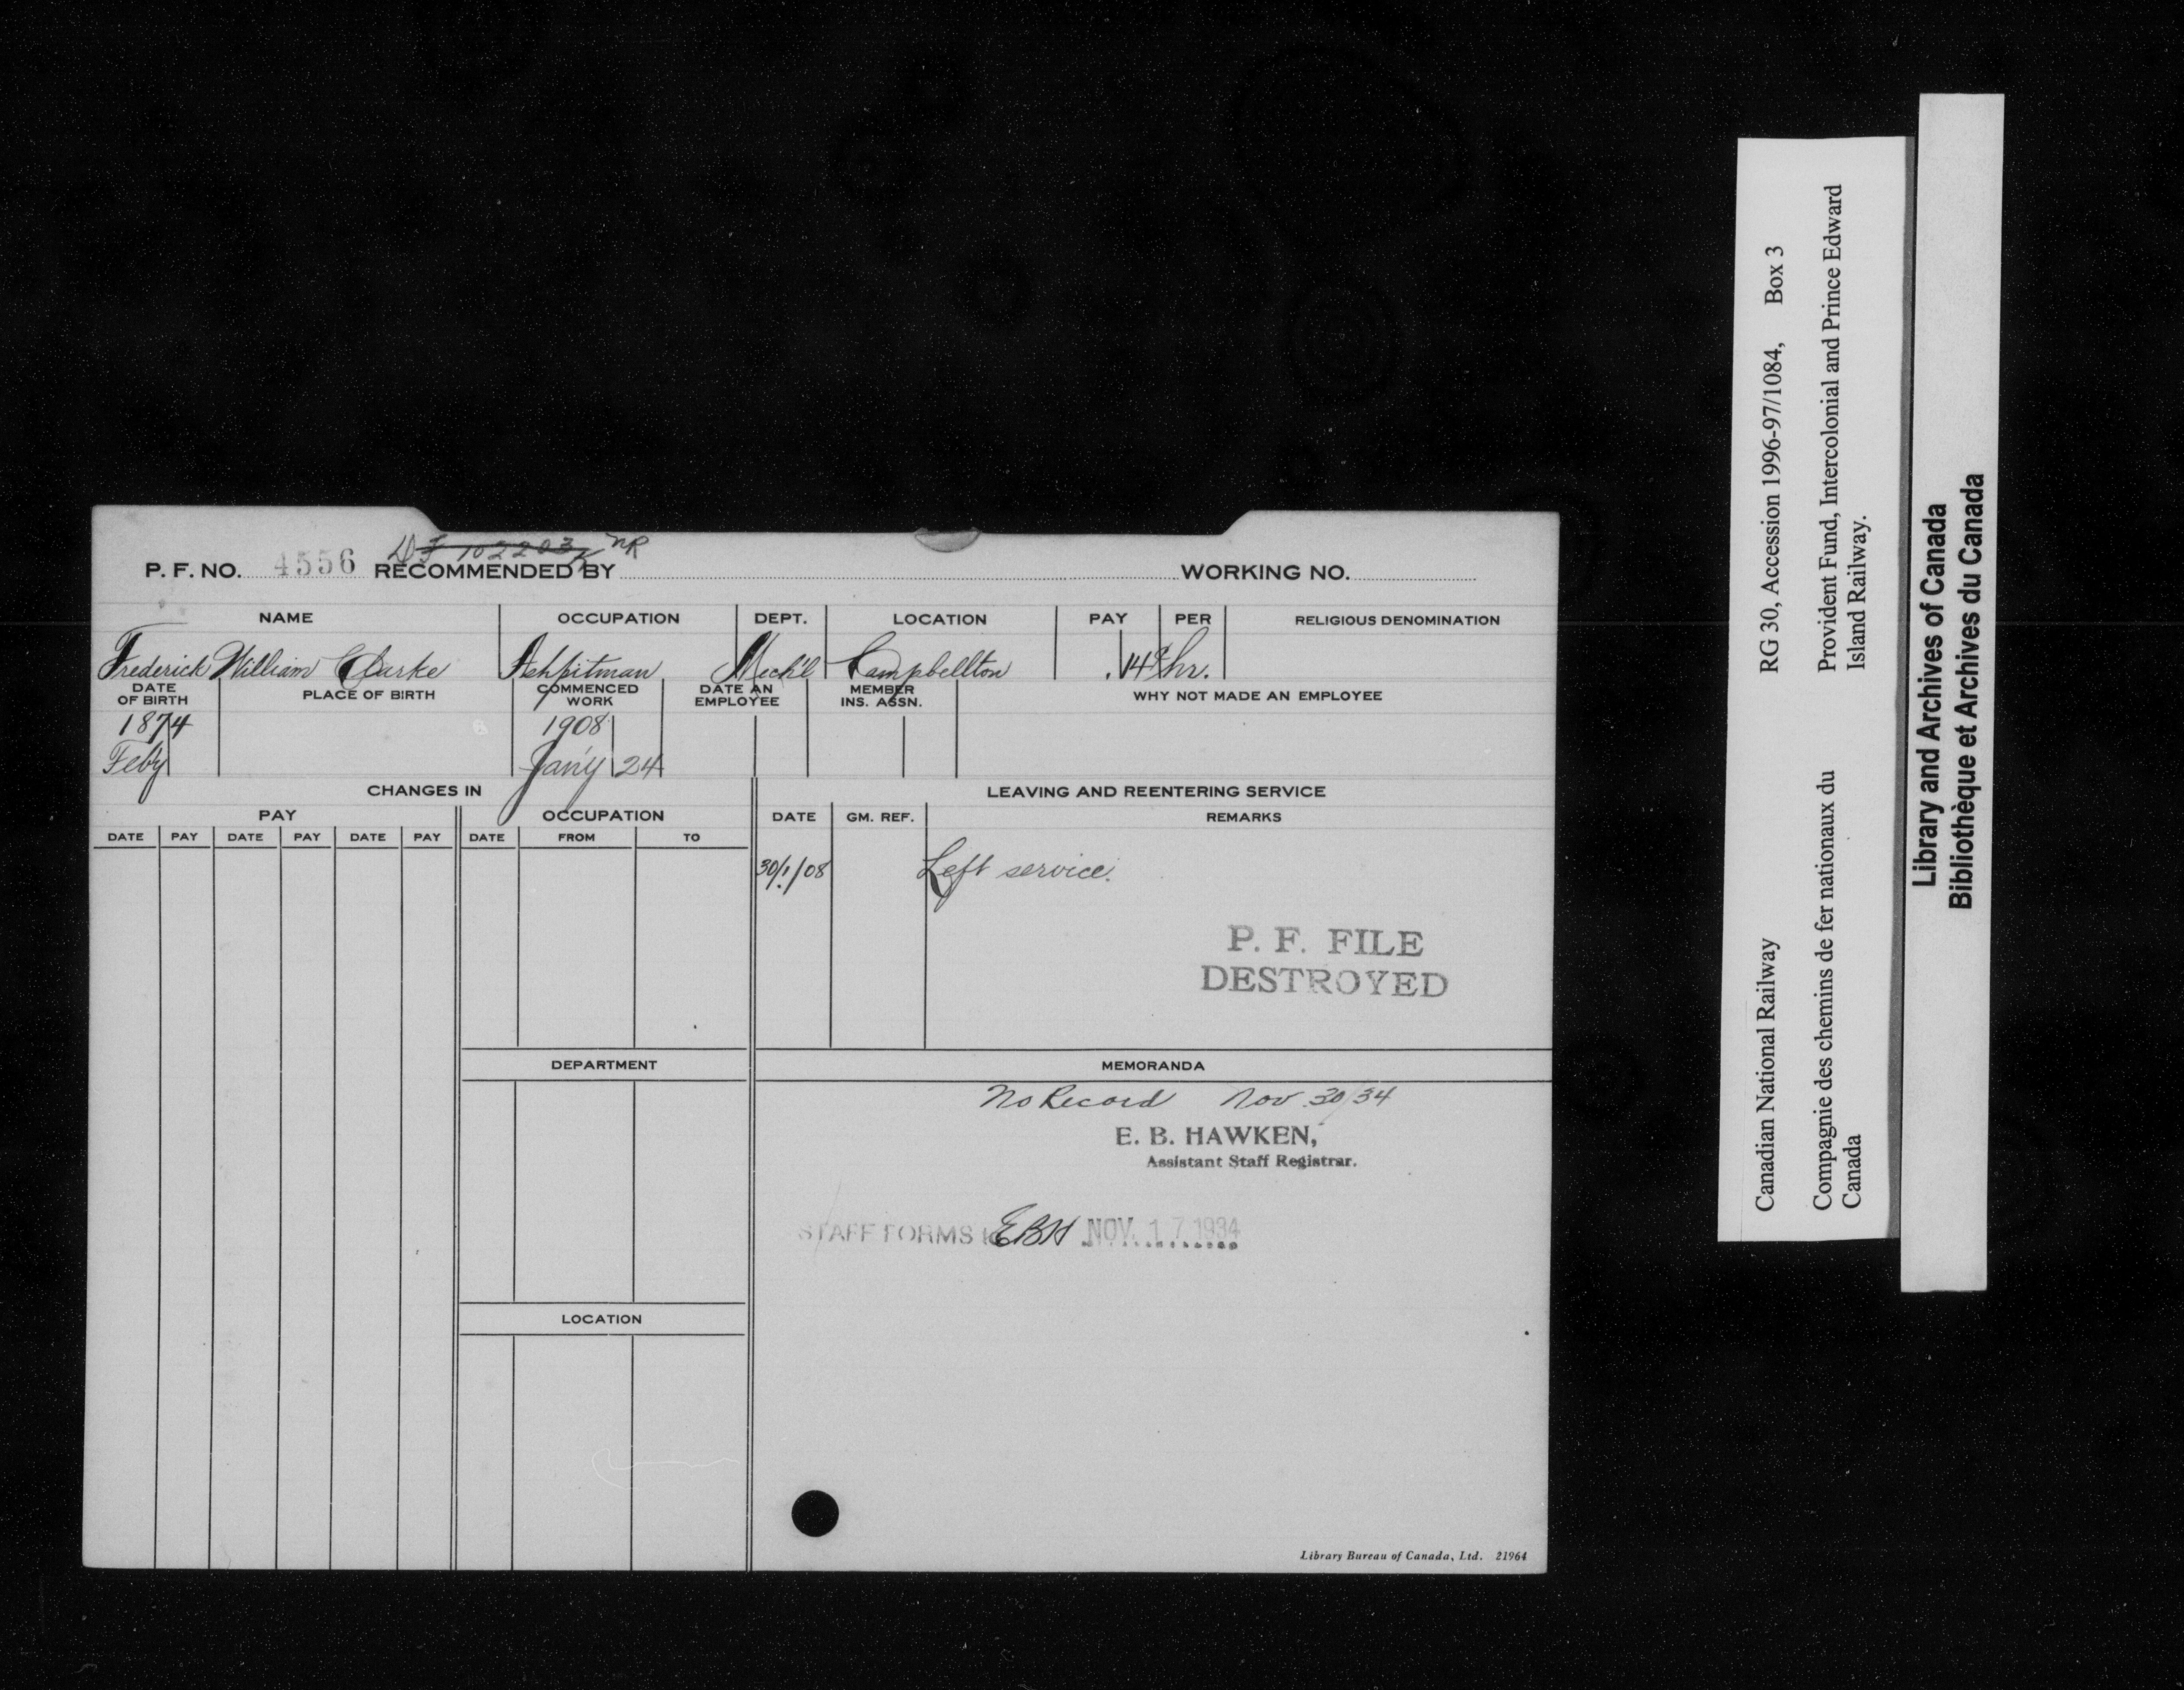 DF 102203 NR
P. F. NO. 4556 RECOMMENDED BY WORKING NO.
NAME OCCUPATION DEPT. LOCATION PAY PER RELIGIOUS DENOMINATION
Frederick William Clarke Ashpitman Mech'l Campbellton .14 hr.
DATE OF BIRTH PLACE OF BIRTH COMMENCED WORK DATE AN EMPLOYEE MEMBER INS. ASSN. WHY NOT MADE AN EMPLOYEE
1874 1908
Feby Jan'y 24
CHANGES IN LEAVING AND REENTERING SERVICE
PAY OCCUPATION DATE GM. REF. REMARKS
DATE PAY DATE PAY DATE PAY DATE FROM TO
30/1/08 Left service.
P. F. FILE
DESTROYED
DEPARTMENT MEMORANDA
No Record Nov. 30/34
E. B. HAWKEN,
Assistant Staff Registrar.
STAFF FORMS EBH NOV. 17 1934
LOCATION
Library Bureau of Canada, Ltd. 21964
Canadian National Railway RG 30, Accession 1996-97/1084, Box 3
Compagnie des chemins de fer nationaux du Canada
Provident Fund, Intercolonial and Prince Edward Island Railway.
Library and Archives of Canada
Bibliothèque et Archives du Canada